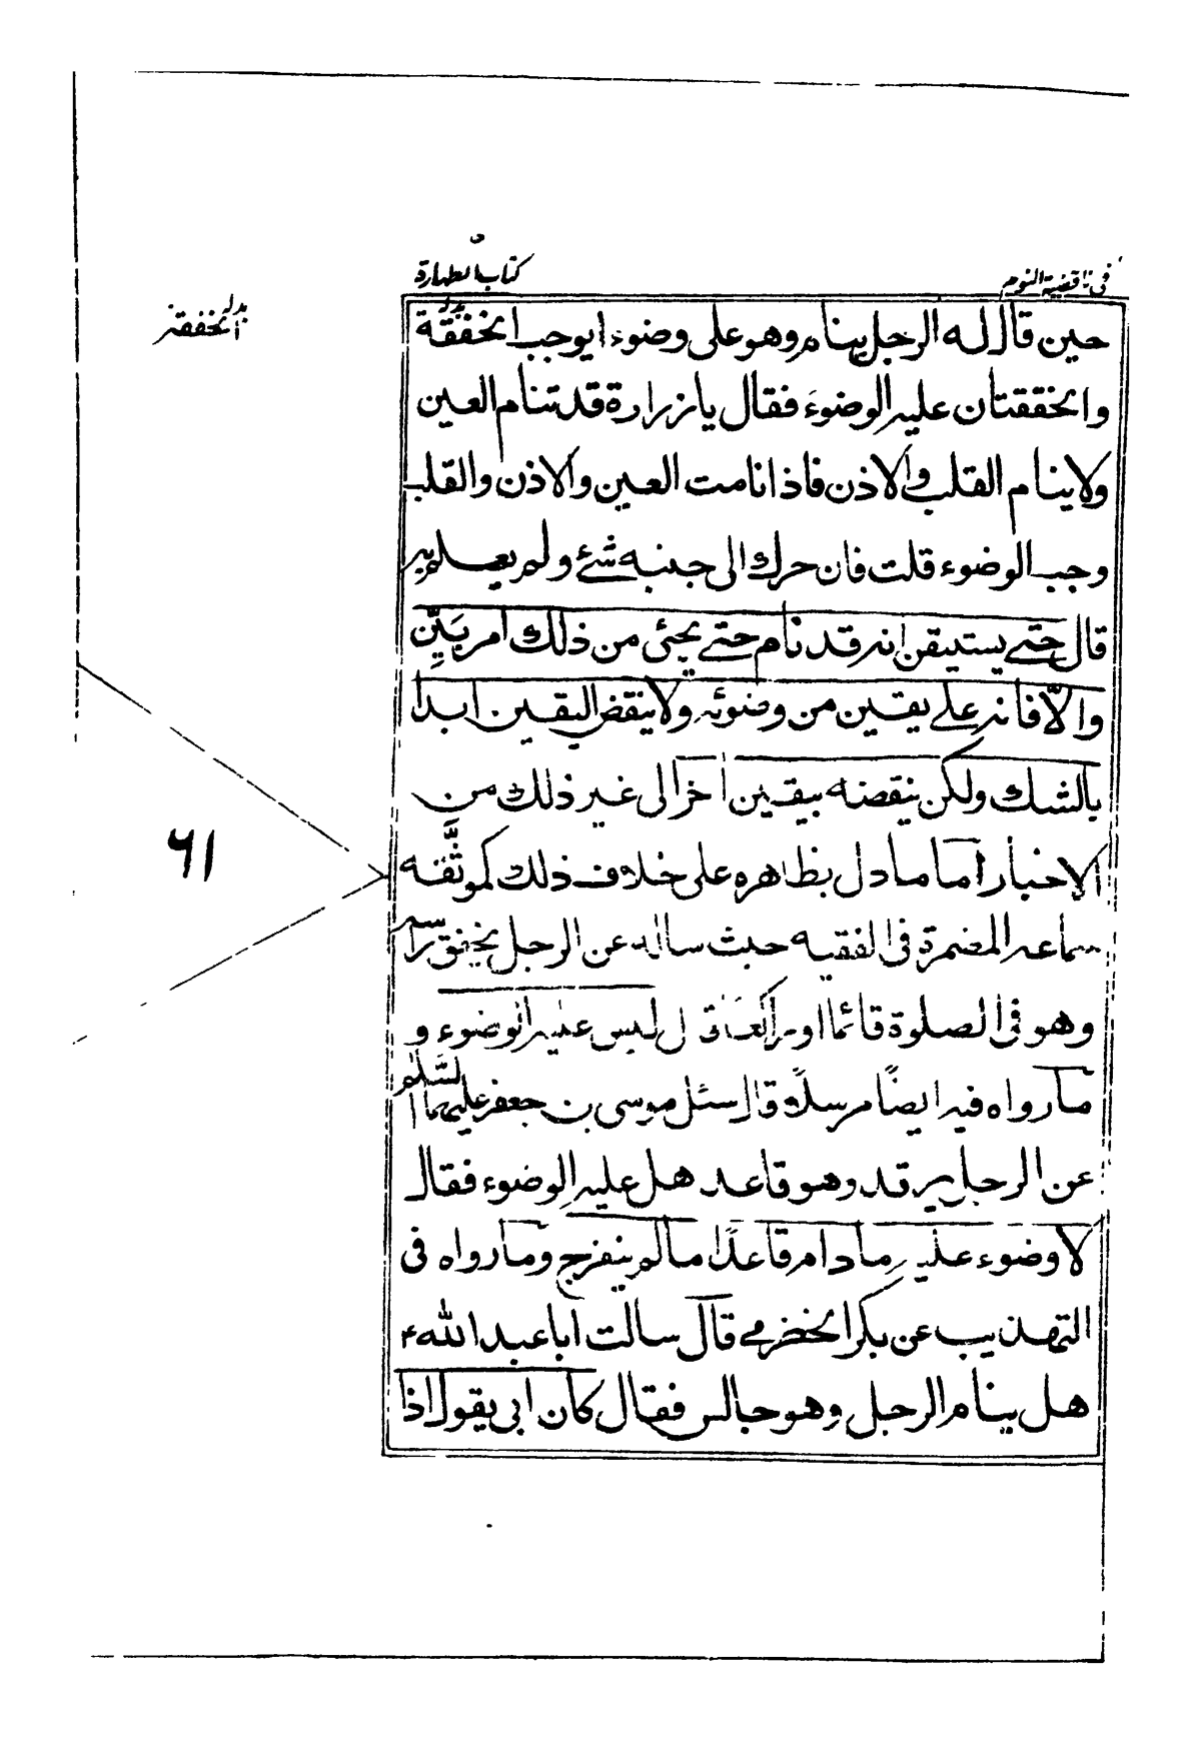 في ناقضية النوم
كتاب الطهارة
حين قال له الرجل ينام وهو على وضوء ايوجب الخفقة
بدل
الخفقة
والخفقتان عليه الوضوء فقال يا زرارة قد تنام العين
ولا ينام القلب والاذن فاذا نامت العين والاذن والقلب
وجب الوضوء قلت فان حرك الى جنبه شئ ولم يعلم به
قال حتى يستيقن انه قد نام حتى يجئ من ذلك امر بيّن
والّا فانه على يقين من وضوئه ولا ينقض اليقين ابدا
بالشك ولكن ينقضه بيقين اخر الى غير ذلك من
الاخبار اما ما دل بظاهره على خلاف ذلك كموثّقه
سماعه المضمرة في الفقيه حيث ساله عن الرجل يخفق راسه
وهو في الصلوة قائما او راكعا قال ليس عليه الوضوء و
ما رواه فيه ايضًا مرسلاً قال سئل موسى بن جعفر عليهما السّلام
عن الرجل يرقد وهو قاعد هل عليه الوضوء فقال
لا وضوء عليه ما دام قاعدًا ما لم ينفرج وما رواه في
التهذيب عن بكر الحضرمي قال سالت ابا عبد الله ع
هل ينام الرجل وهو جالس فقال كان ابي يقول اذا
٦١